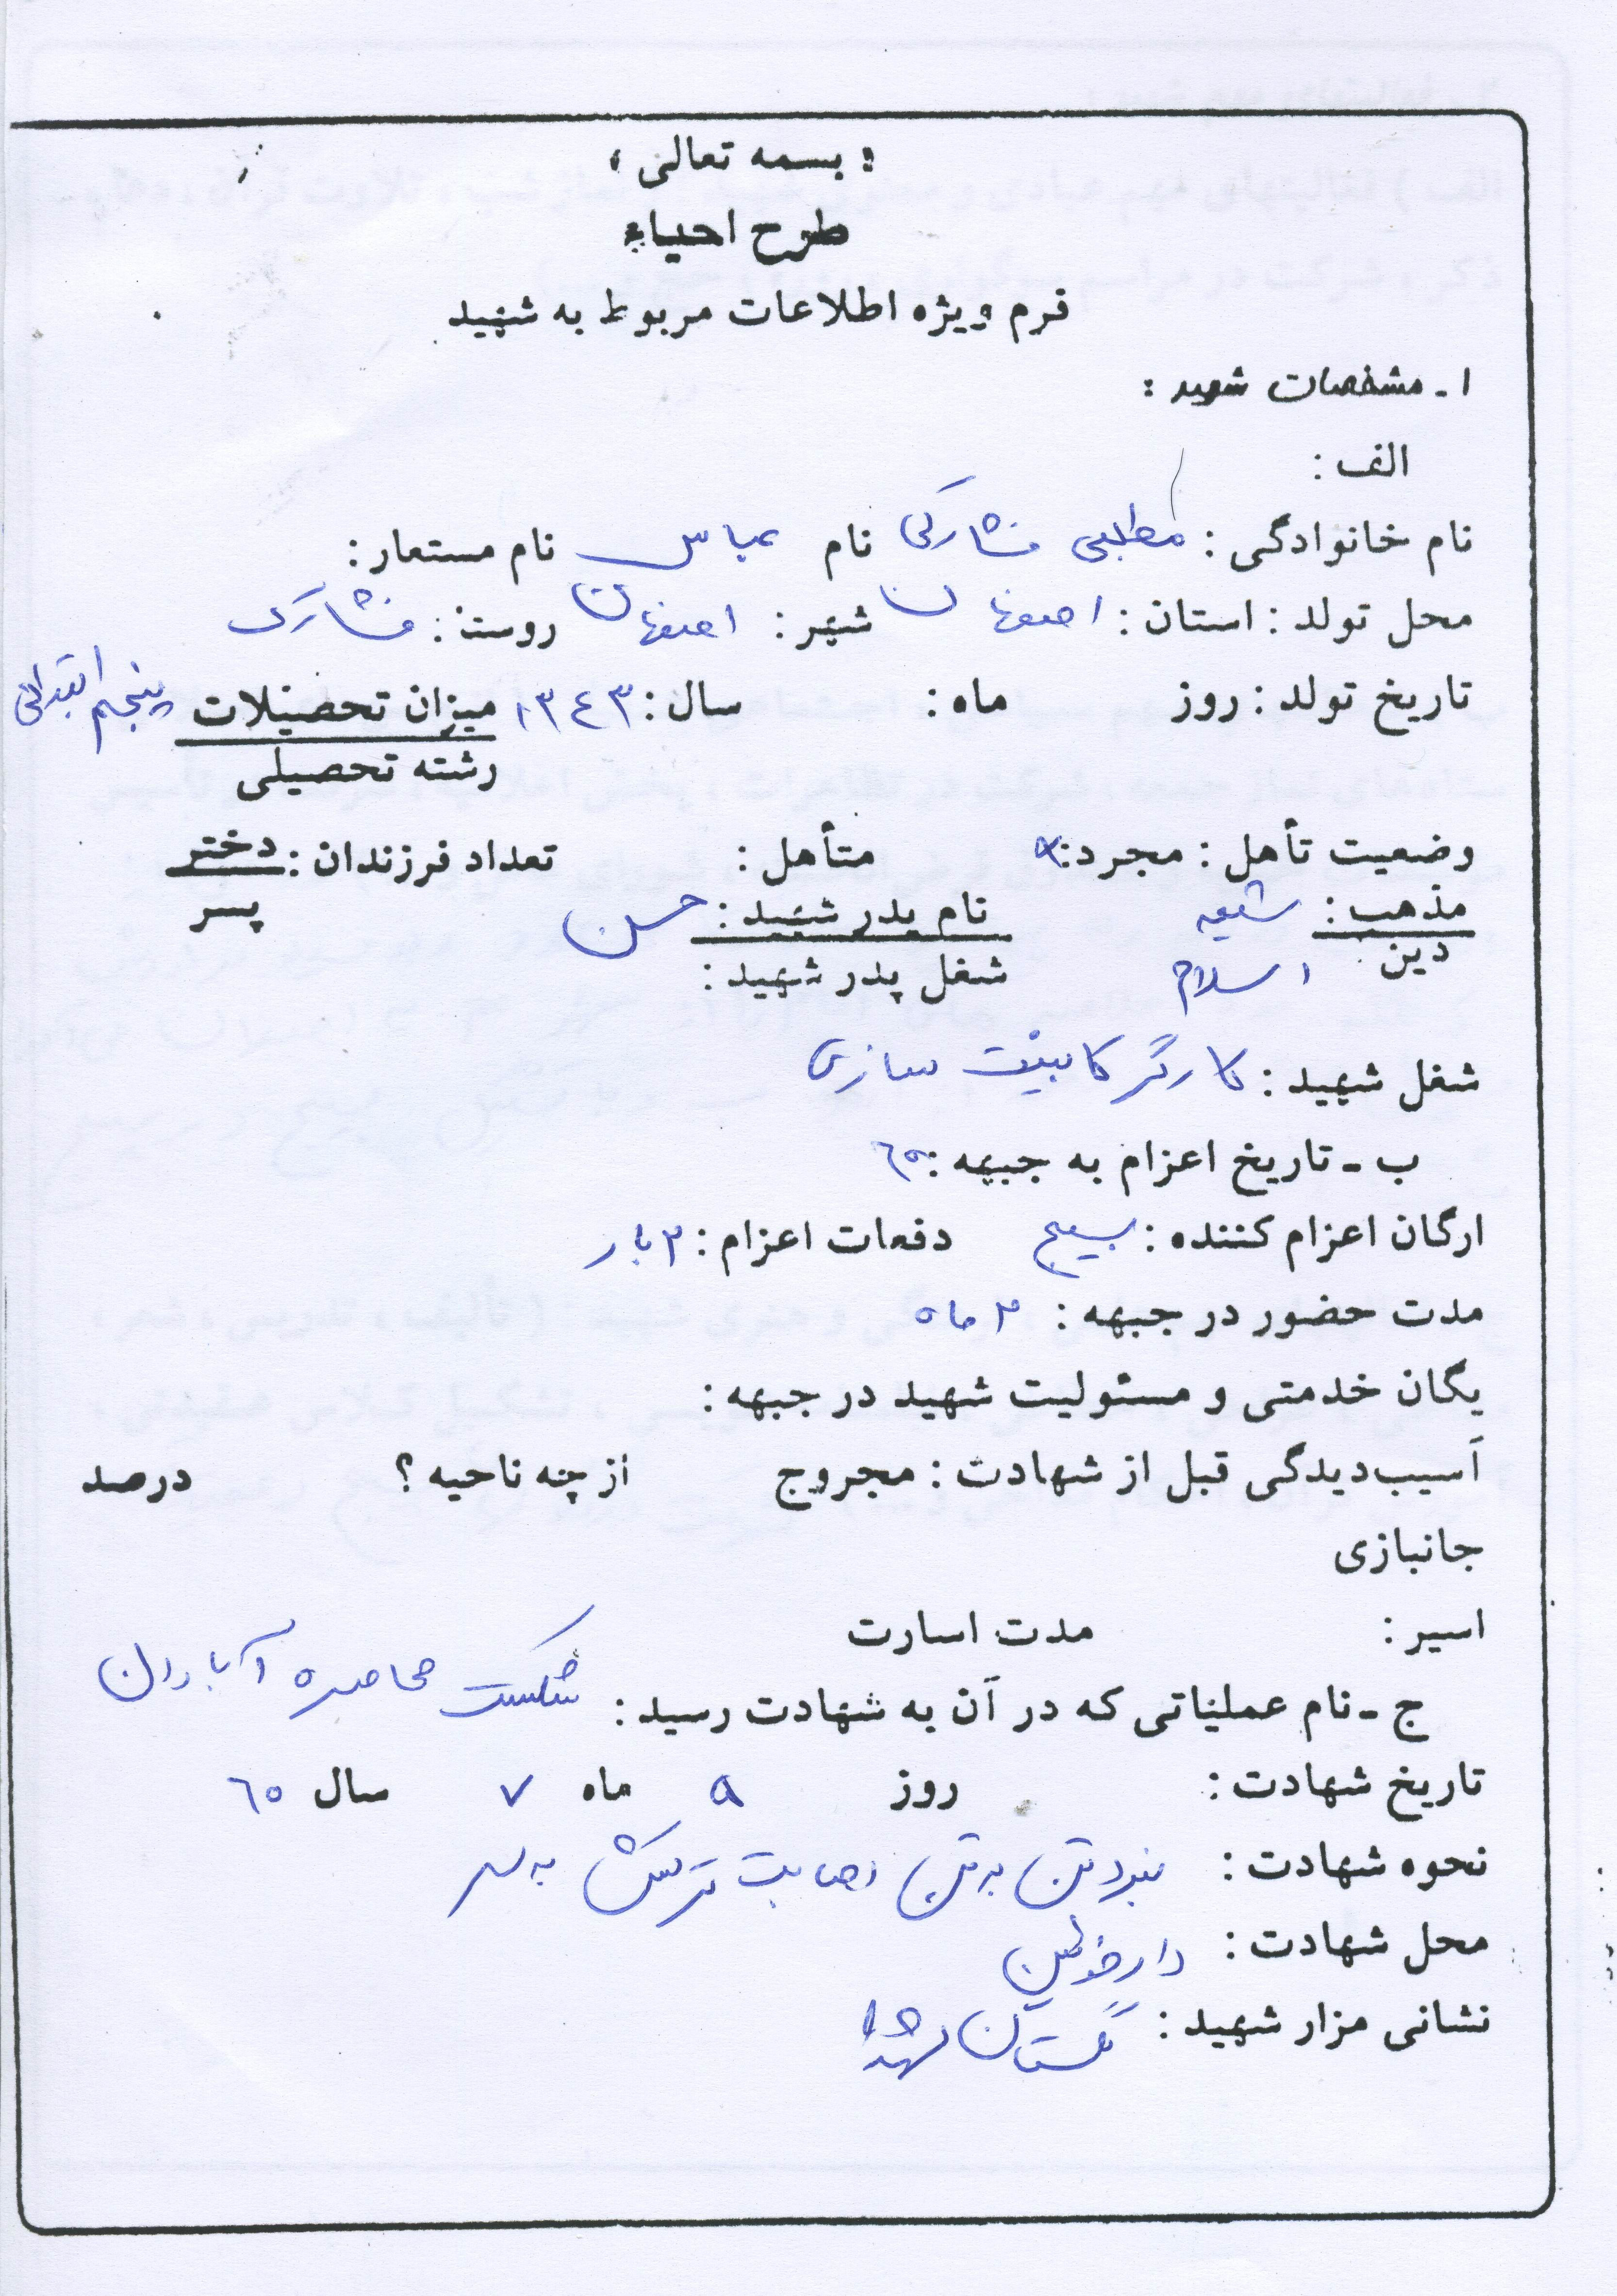 « بسمه تعالی »
طرح احیاء
فرم ویژه اطلاعات مربوط به شهید
۱ ـ مشخصات شهید :
الف :
نام خانوادگی : مطلبی فشارکی نام عباس نام مستعار :
محل تولد : استان : اصفهان شهر : اصفهان روستا : فشارک
تاریخ تولد : روز ماه : سال : ۱۳۴۳ میزان تحصیلات پنجم ابتدائی
رشته تحصیلی
وضعیت تأهل : مجرد : × متأهل : تعداد فرزندان : دختر
پسر
مذهب : شیعه نام پدر شهید : حسن
دین اسلام شغل پدر شهید :
شغل شهید : کارگر کابینت سازی
ب ـ تاریخ اعزام به جبهه : ۶۰
ارگان اعزام کننده : بسیج دفعات اعزام : ۲ بار
مدت حضور در جبهه : ۳ ماه
یگان خدمتی و مسئولیت شهید در جبهه :
آسیب‌دیدگی قبل از شهادت : مجروح از چه ناحیه ؟ درصد
جانبازی
اسیر : مدت اسارت
ج ـ نام عملیاتی که در آن به شهادت رسید : شکست محاصره آبادان
تاریخ شهادت : روز ۵ ماه ۷ سال ۶۰
نحوه شهادت : نبرد تن به تن اصابت ترکش به سر
محل شهادت : دارخوئین
نشانی مزار شهید : گلستان شهدا